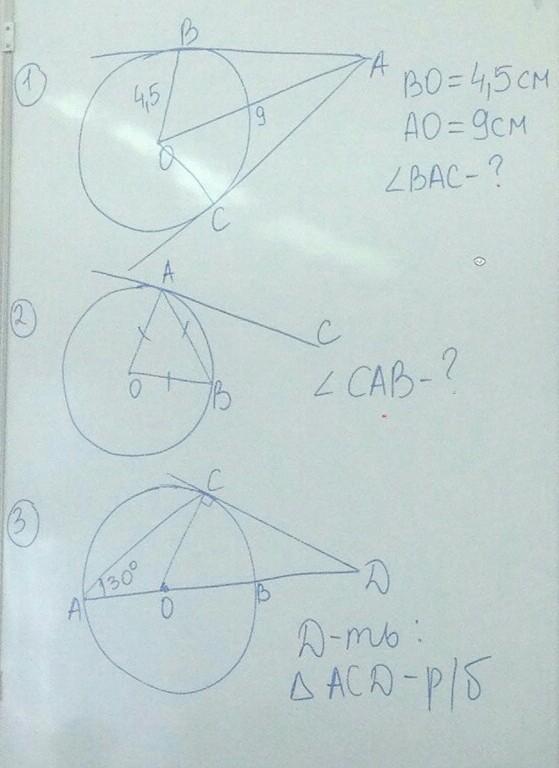 1
B
A
4,5
9
O
C
BO = 4,5 см
AO = 9 см
∠BAC - ?
2
A
C
O
B
∠CAB - ?
3
C
30°
A
O
B
D
Д-ть:
△ACD - р/б